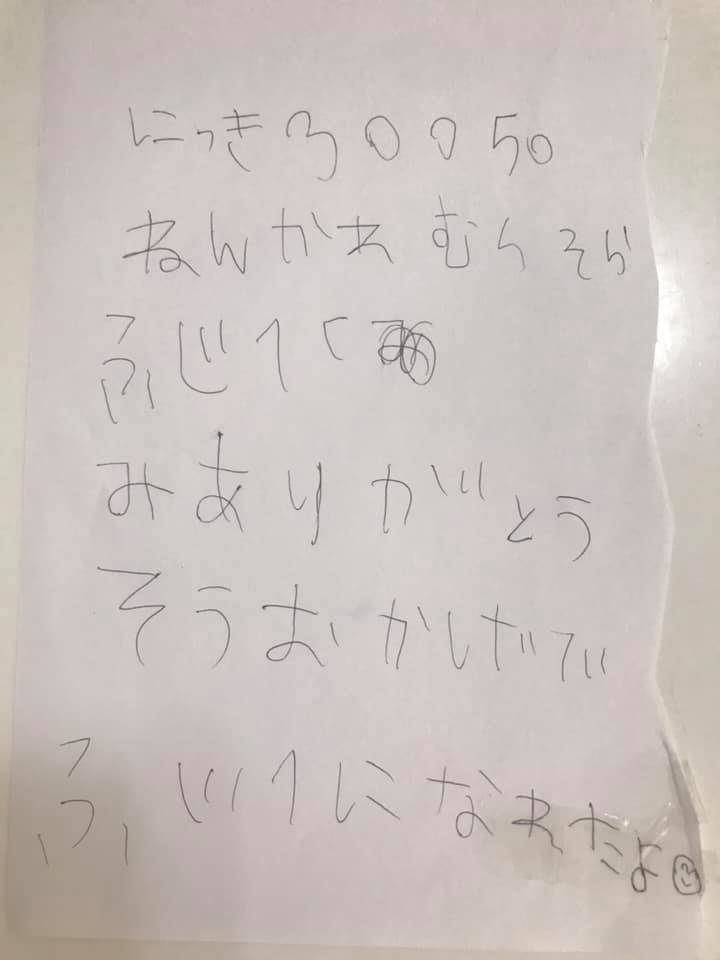 にっき30050
ねんかれむらそら
ふじてく
みありがとう
そうおかげで
ふじてになれたよ